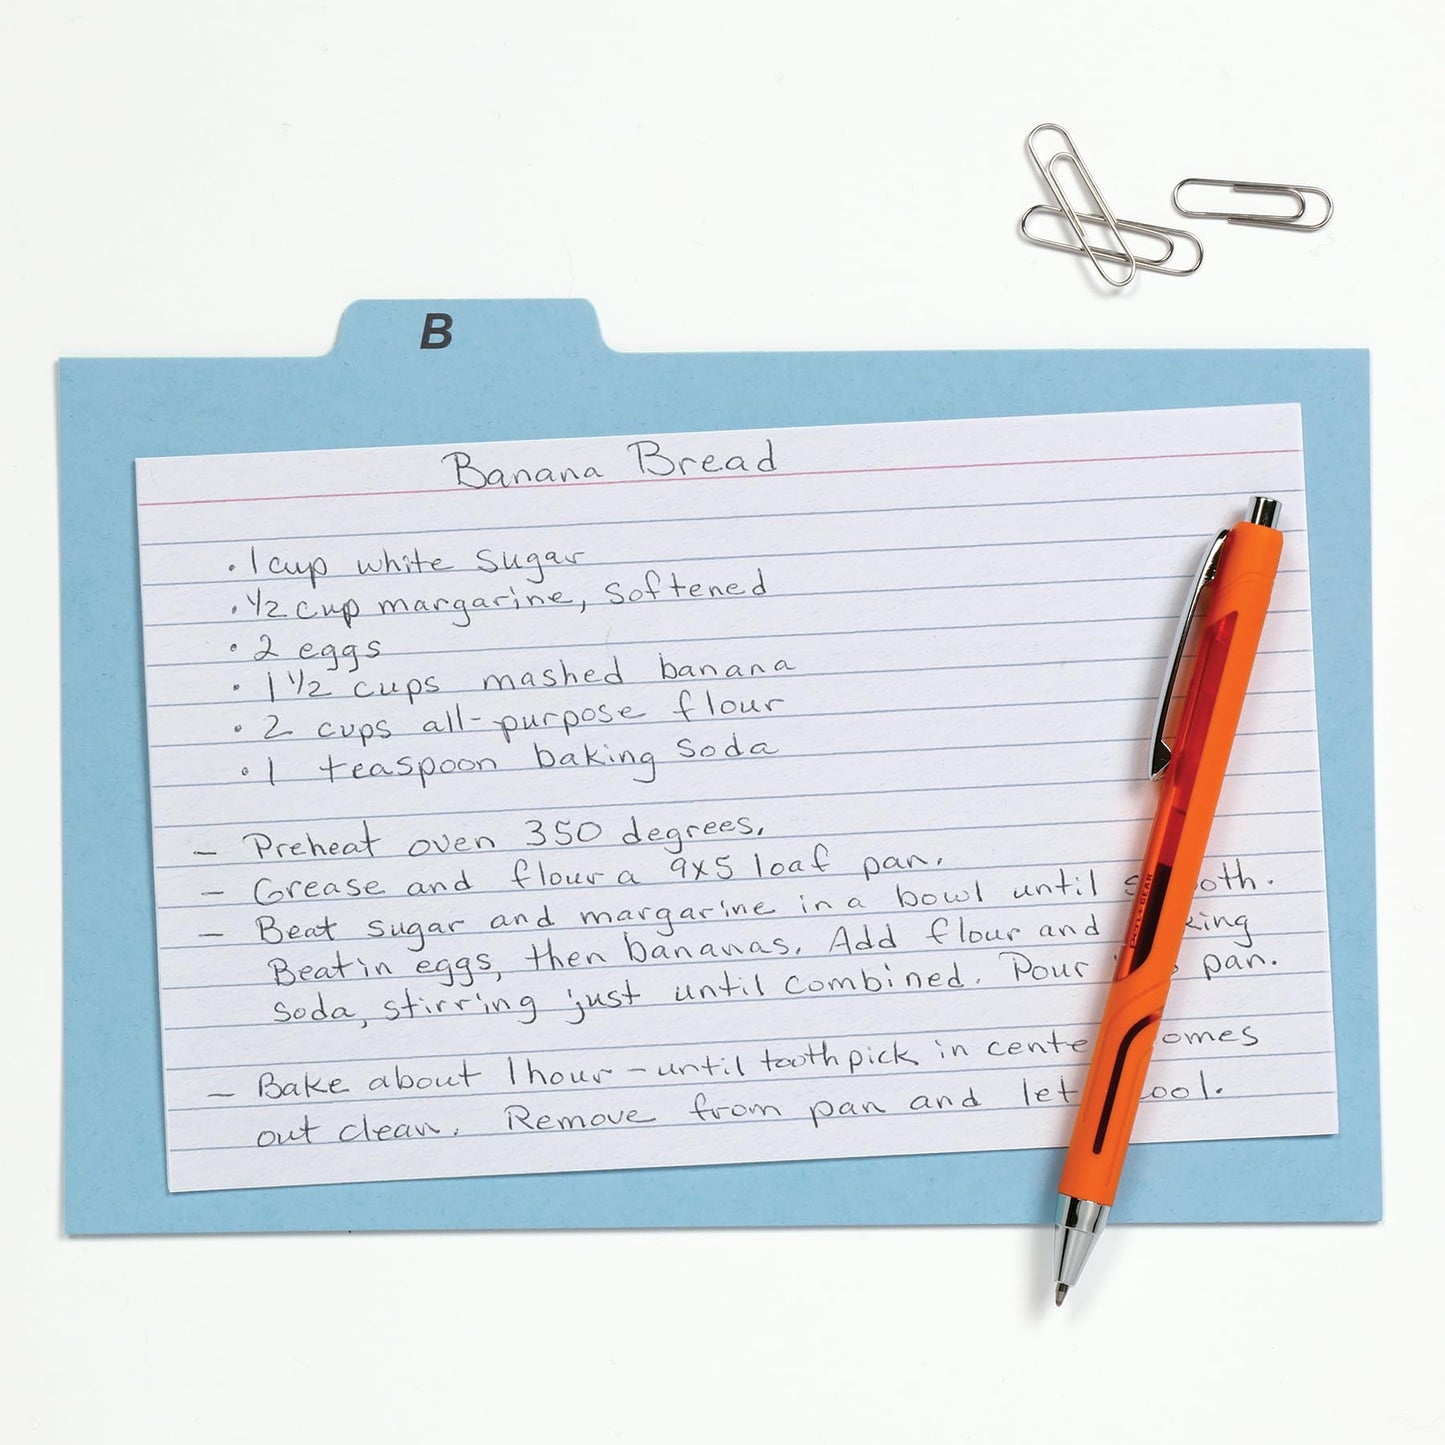 B
Banana Bread
· 1 cup white sugar
· 1/2 cup margarine, softened
· 2 eggs
· 1 1/2 cups mashed banana
· 2 cups all-purpose flour
· 1 teaspoon baking soda
– Preheat oven 350 degrees.
– Grease and flour a 9x5 loaf pan.
– Beat sugar and margarine in a bowl until s oth.
Beat in eggs, then bananas. Add flour and king
soda, stirring just until combined. Pour pan.
– Bake about 1 hour – until toothpick in cente omes
out clean. Remove from pan and let ool.